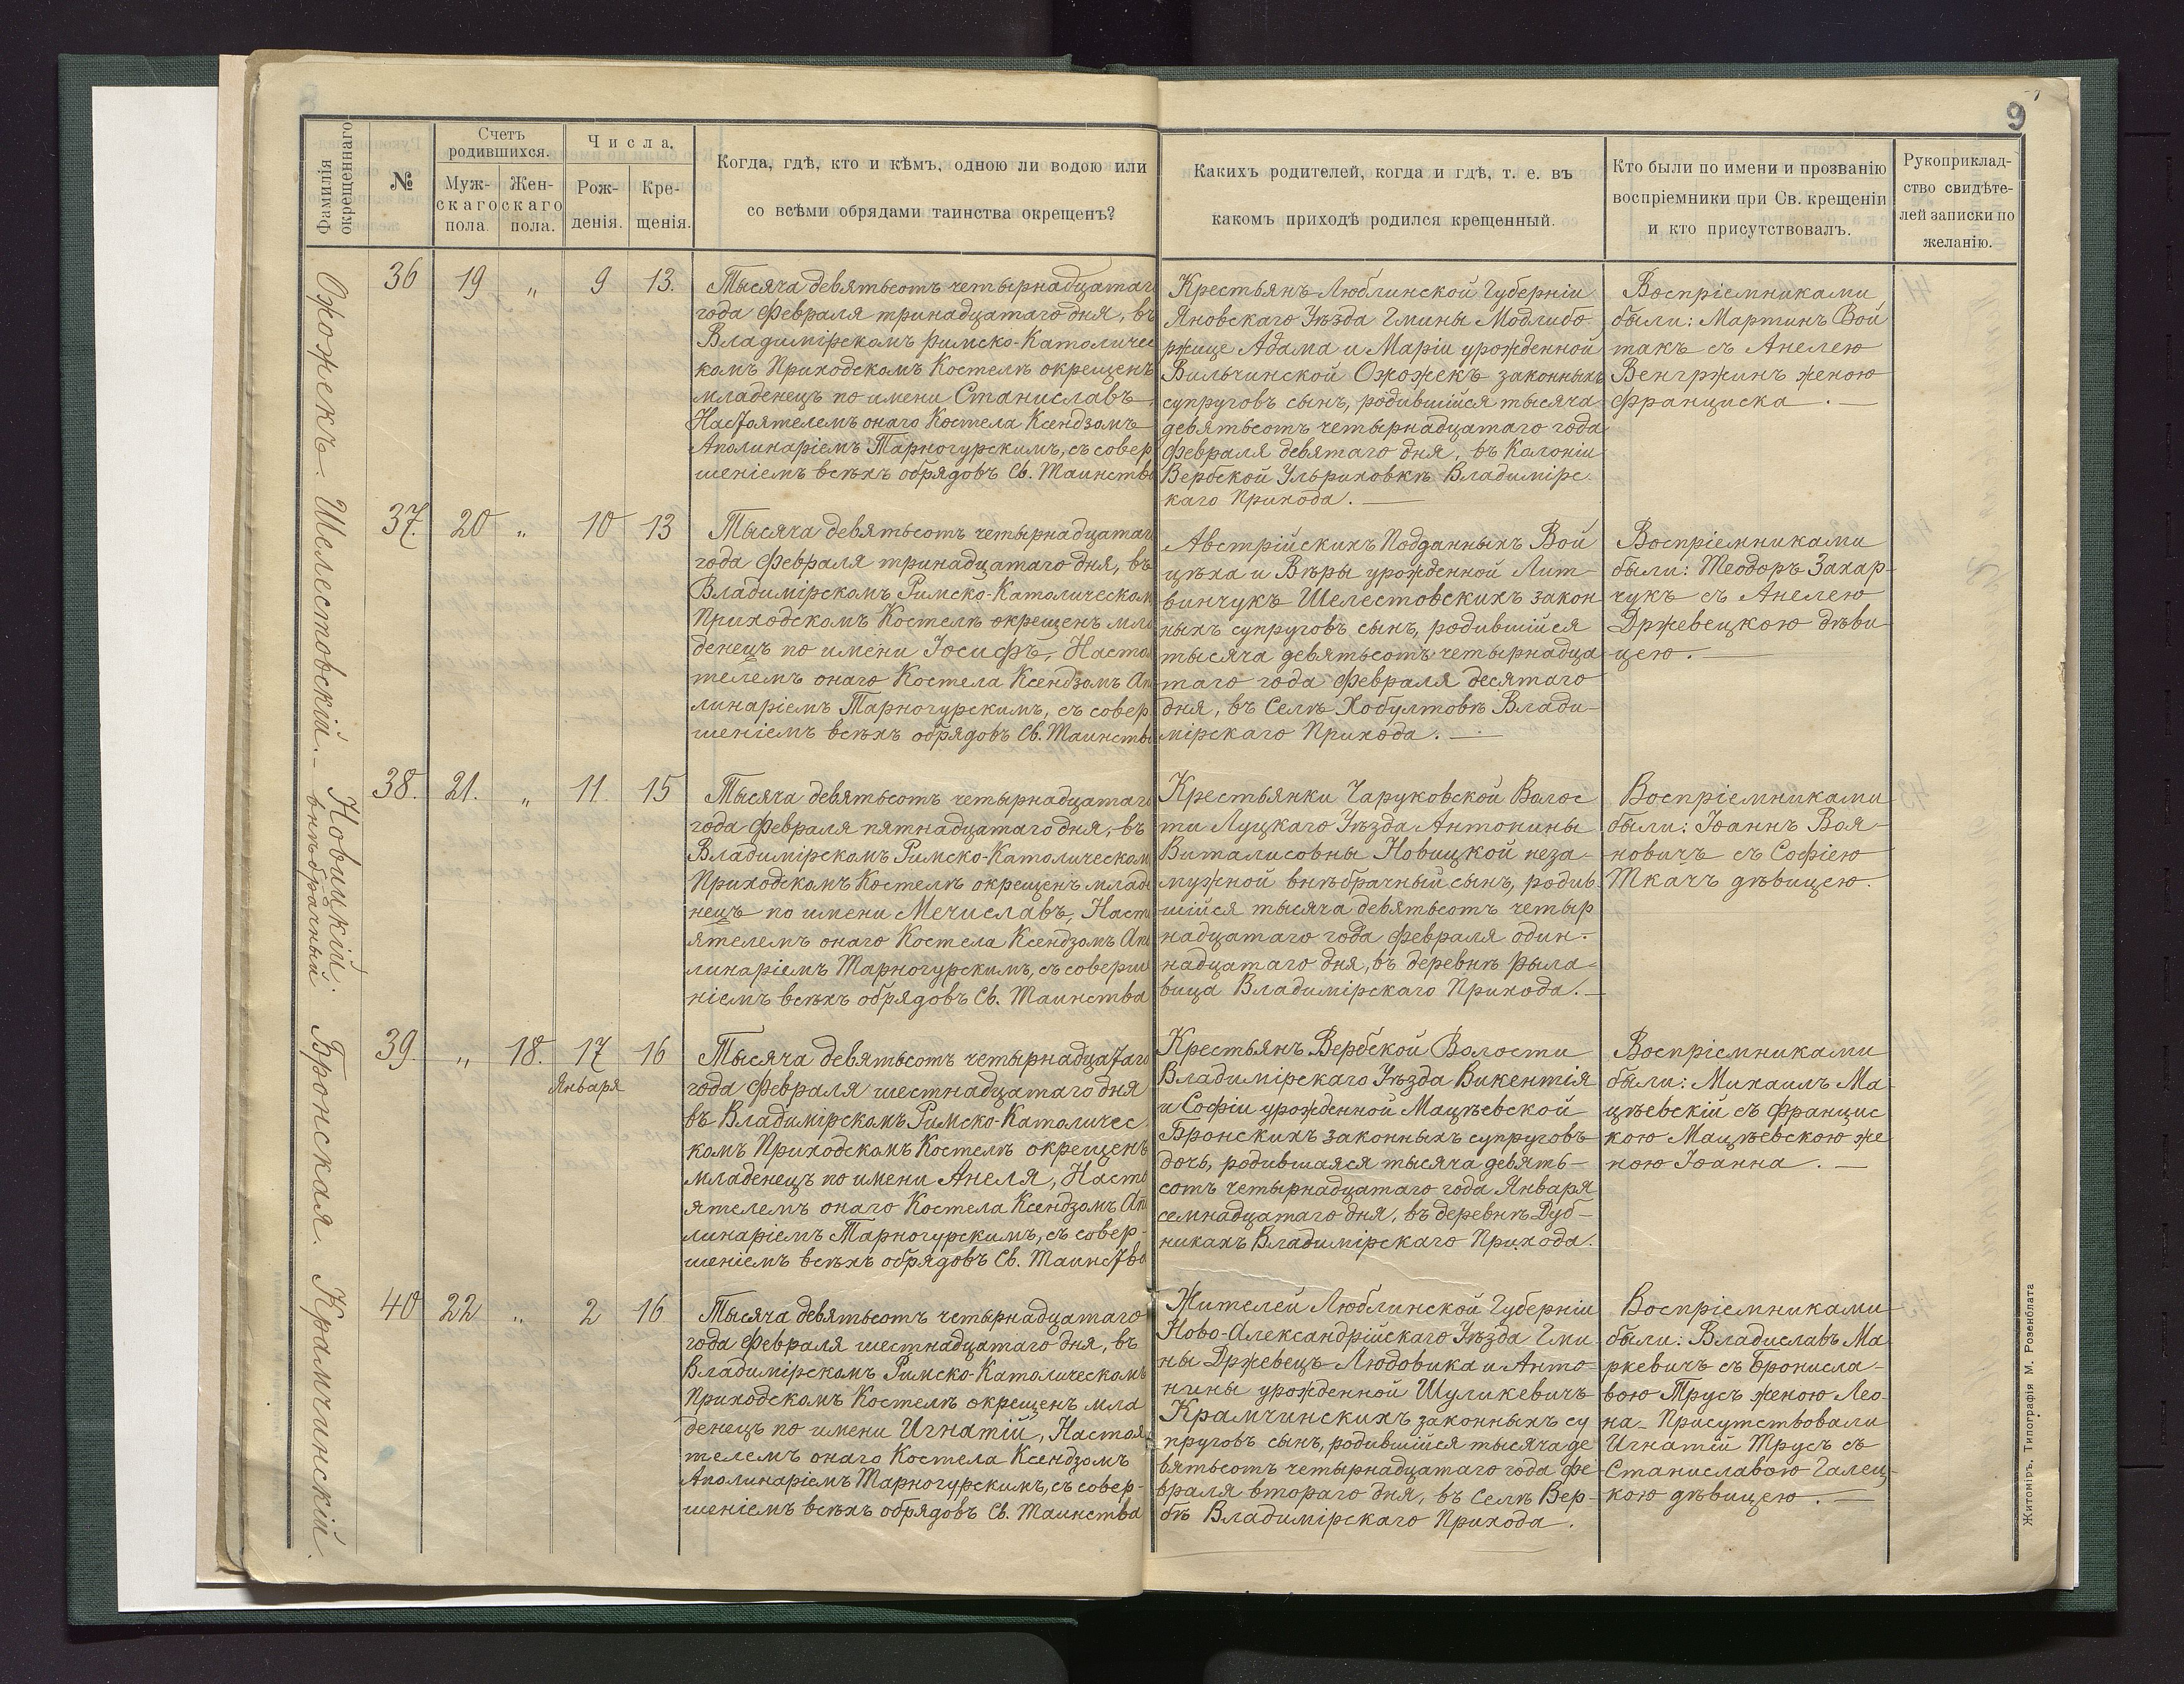 9
Фамилія
окрещеннаго
№
Счетъ
родившихся.
Муж-
скаго
пола.
Жен-
скаго
пола.
Числа,
Рож-
денія.
Кре-
щенія.
Когда, гдѣ, кто и кѣмъ, одною ли водою или
со всѣми обрядами таинства окрещенъ?
Каких​ъ родителей, когда и гдѣ, т. е. въ
какомъ приходѣ родился крещенный.
Кто были по имени и прозванію
воспріемники при Св. крещеніи
и кто присутствовалъ.
Рукоприклад-
ство свидѣте-
лей записки по
желанію.
Ожожекъ.
36
19
„
9
13.
Тысяча девятьсотъ четырнадцатаго
года февраля тринадцатаго дня, въ
Владимірскомъ римско-Католичес
комъ Приходскомъ Костелѣ окрещенъ
младенецъ по имени Станиславъ,
Настоятелемъ онаго Костела Ксендзомъ
Аполинаріемъ Тарногурскимъ, съ совер
шеніемъ всѣхъ обрядовъ Св. Таинства
Крестьянъ Люблинской Губерніи
Яновскаго Уѣзда Гмины Модлибо
ржице Адама и Маріи урожденной
Вильчинской Ожожекъ законныхъ
супруговъ сынъ, родившійся тысяча
девятьсотъ четырнадцатаго года
февраля девятаго дня, въ Колоніи
Вербской Ульриховкѣ Владимірс
каго Прихода.
Воспріемниками
были: Мартинъ Вой
такъ съ Анелею
Венгржинъ женою
Франциска.
Шелестовскій.
37.
20
„
10
13
Тысяча девятьсотъ четырнадцатаг
года февраля тринадцатаго дня, въ
Владимірскомъ Римско-Католическом
Приходскомъ Костелѣ окрещенъ мла
денецъ по имени Іосифъ, Настоя
телемъ онаго Костела Ксендзомъ Апо
линаріемъ Тарногурскимъ, съ совер
шеніемъ всѣхъ обрядовъ Св. Таинства
Австрійскихъ Подданныхъ Вой
цѣха и Вѣры урожденной Лит-
винчукъ Шелестовскихъ закон
ныхъ супруговъ сынъ, родившійся
тысяча девятьсотъ четырнадца
таго года февраля десятаго
дня, въ Селѣ Хобултовѣ Влади-
мірскаго Прихода.
Воспріемниками
были: Теодоръ Захар-
чукъ съ Анелею
Држевецкою дѣви-
цею.
Новицкій;
внѣбрачный
38.
21.
„
11
15
Тысяча девятьсотъ четырнадцатаго
года февраля пятнадцатаго дня, въ
Владимірскомъ Римско-Католическом
Приходскомъ Костелѣ окрещенъ младе
нецъ по имени Мечиславъ, Насто
ятелемъ онаго Костела Ксендзомъ Апо
линаріемъ Тарногурскимъ, съ соверше
ніемъ всѣхъ обрядовъ Св. Таинства
Крестьянки Чаруковской Волос
ти Луцкаго Уѣзда Антонины
Виталисовны Новицкой неза-
мужной внѣбрачный сынъ, родив
шійся тысяча девятьсотъ четыр
надцатаго года февраля один-
надцатаго дня, въ деревнѣ Рыла-
вица Владимірскаго Прихода.
Воспріемниками
были: Іоаннъ Воя-
новичъ съ Софіею
Ткачъ дѣвицею.
Бронская.
39.
„
18.
17
Января
16
Тысяча девятьсотъ четырнадцатаго
года февраля шестнадцатаго дня
въ Владимірскомъ Римско-Католичес
комъ Приходскомъ Костелѣ окрещенъ
младенецъ по имени Анеля, Насто
ятелемъ онаго Костела Ксендзомъ Апо
линаріемъ Тарногурскимъ, съ совер-
шеніемъ всѣхъ обрядовъ Св. Таинства
Крестьянъ Вербской Волости
Владимірскаго Уѣзда Викентія
и Софіи урожденной Мацѣевской
Бронскихъ законныхъ супруговъ
дочь, родившаяся тысяча девять-
сотъ четырнадцатаго года Января
семнадцатаго дня, въ деревнѣ Дуб-
никахъ Владимірскаго Прихода.
Воспріемниками
были: Михаилъ Ма-
цѣевскій съ Францис
кою Мацѣевскою же
ною Іоанна.
Крамчинскій.
40
22
„
2
16
Тысяча девятьсотъ четырнадцатаго
года февраля шестнадцатаго дня, въ
Владимірскомъ Римско-Католическомъ
Приходскомъ Костелѣ окрещенъ мла
денецъ по имени Игнатій, Настоя
телемъ онаго Костела Ксендзомъ
Аполинаріемъ Тарногурскимъ, съ совер-
шеніемъ всѣхъ обрядовъ Св. Таинства
Жителей Люблинской Губерніи
Ново-Александрійскаго Уѣзда Гми
ны Држевецъ Людовика и Анто-
нины урожденной Шуликевичъ
Крамчинскихъ законныхъ су
пруговъ сынъ, родившійся тысяча де
вятьсотъ четырнадцатаго года фе
враля втораго дня, въ Селѣ Вер-
бѣ Владимірскаго Прихода.
Воспріемниками
были: Владиславъ Ма
ркевичъ съ Брониcла-
вою Трусъ женою Лео-
на. Присутствовали
Игнатій Трусъ съ
Станиславою Галец-
кою дѣвицею.
Житоміръ, Типографія М. Розенблата